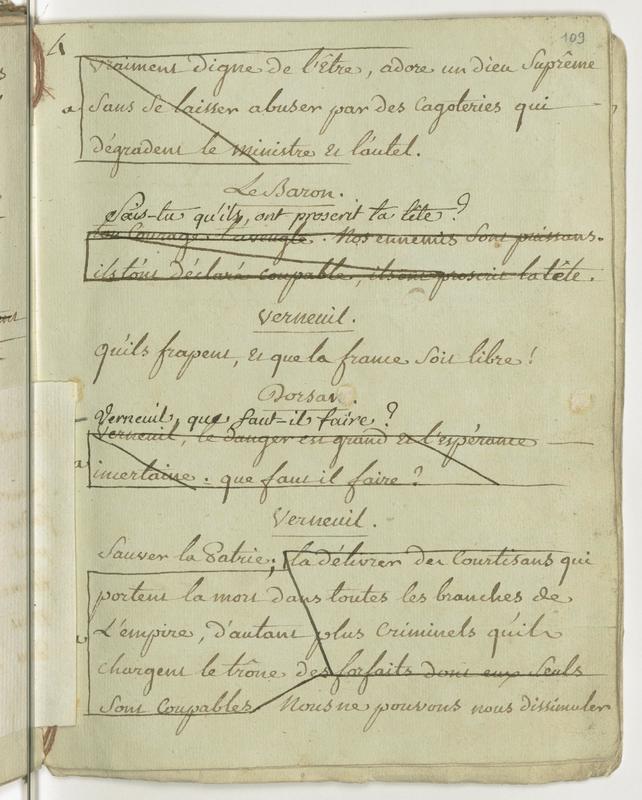 109
vraiment digne de l'être, adore un dieu Suprême
Sans se laisser abuser par des cagoteries qui
dégradent le ministre et l'autel.
Le Baron.
Sais-tu qu'ils ont proscrit ta tête ?
ton Courage t'aveugle. Nos ennemis Sont puissans.
ils t'ont déclaré coupable, ils ont proscrit ta tête.
Verneuil.
qu'ils frapent, et que la france Soit libre !
Dorsan.
Verneuil, que faut-il faire ?
Verneuil, le danger est grand et l'espérance
incertaine : que faut il faire ?
Verneuil.
Sauver la Patrie; la délivrer des Courtisans qui
portent la mort dans toutes les branches de
L'empire, d'autant plus Criminels qu'ils
chargent le trône des forfaits dont eux Seuls
Sont Coupables. Nous ne pouvons nous dissimuler